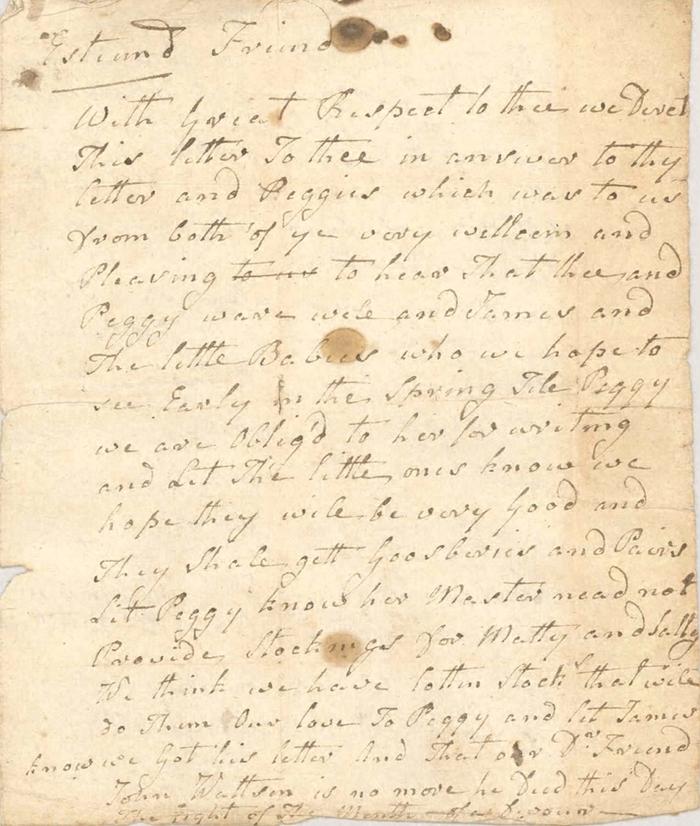 Esteemd Friend
With Great Respect to thee we Direct
This letter To thee in answer to thy
letter and Peggies which was to us
from both of ye very wellcom and
Pleasing to us to hear That thee and
Peggy ware wele and James and
The little Babies who we hope to
see Early in the Spring Tele Peggy
we are Oblig'd to her for writing
and Let The little ones know we
hope they wile be very Good and
They Shale gett Goosberies and Pairs
Let Peggy know her Master nead not
Provide Stockings for Matty and Sally
We think we have Cotten Stock that wile
Do Them Our love To Peggy and let James
know we Got his letter And That our Dr Friend
John Wattson is no more he Died this Day
The eight of The Month